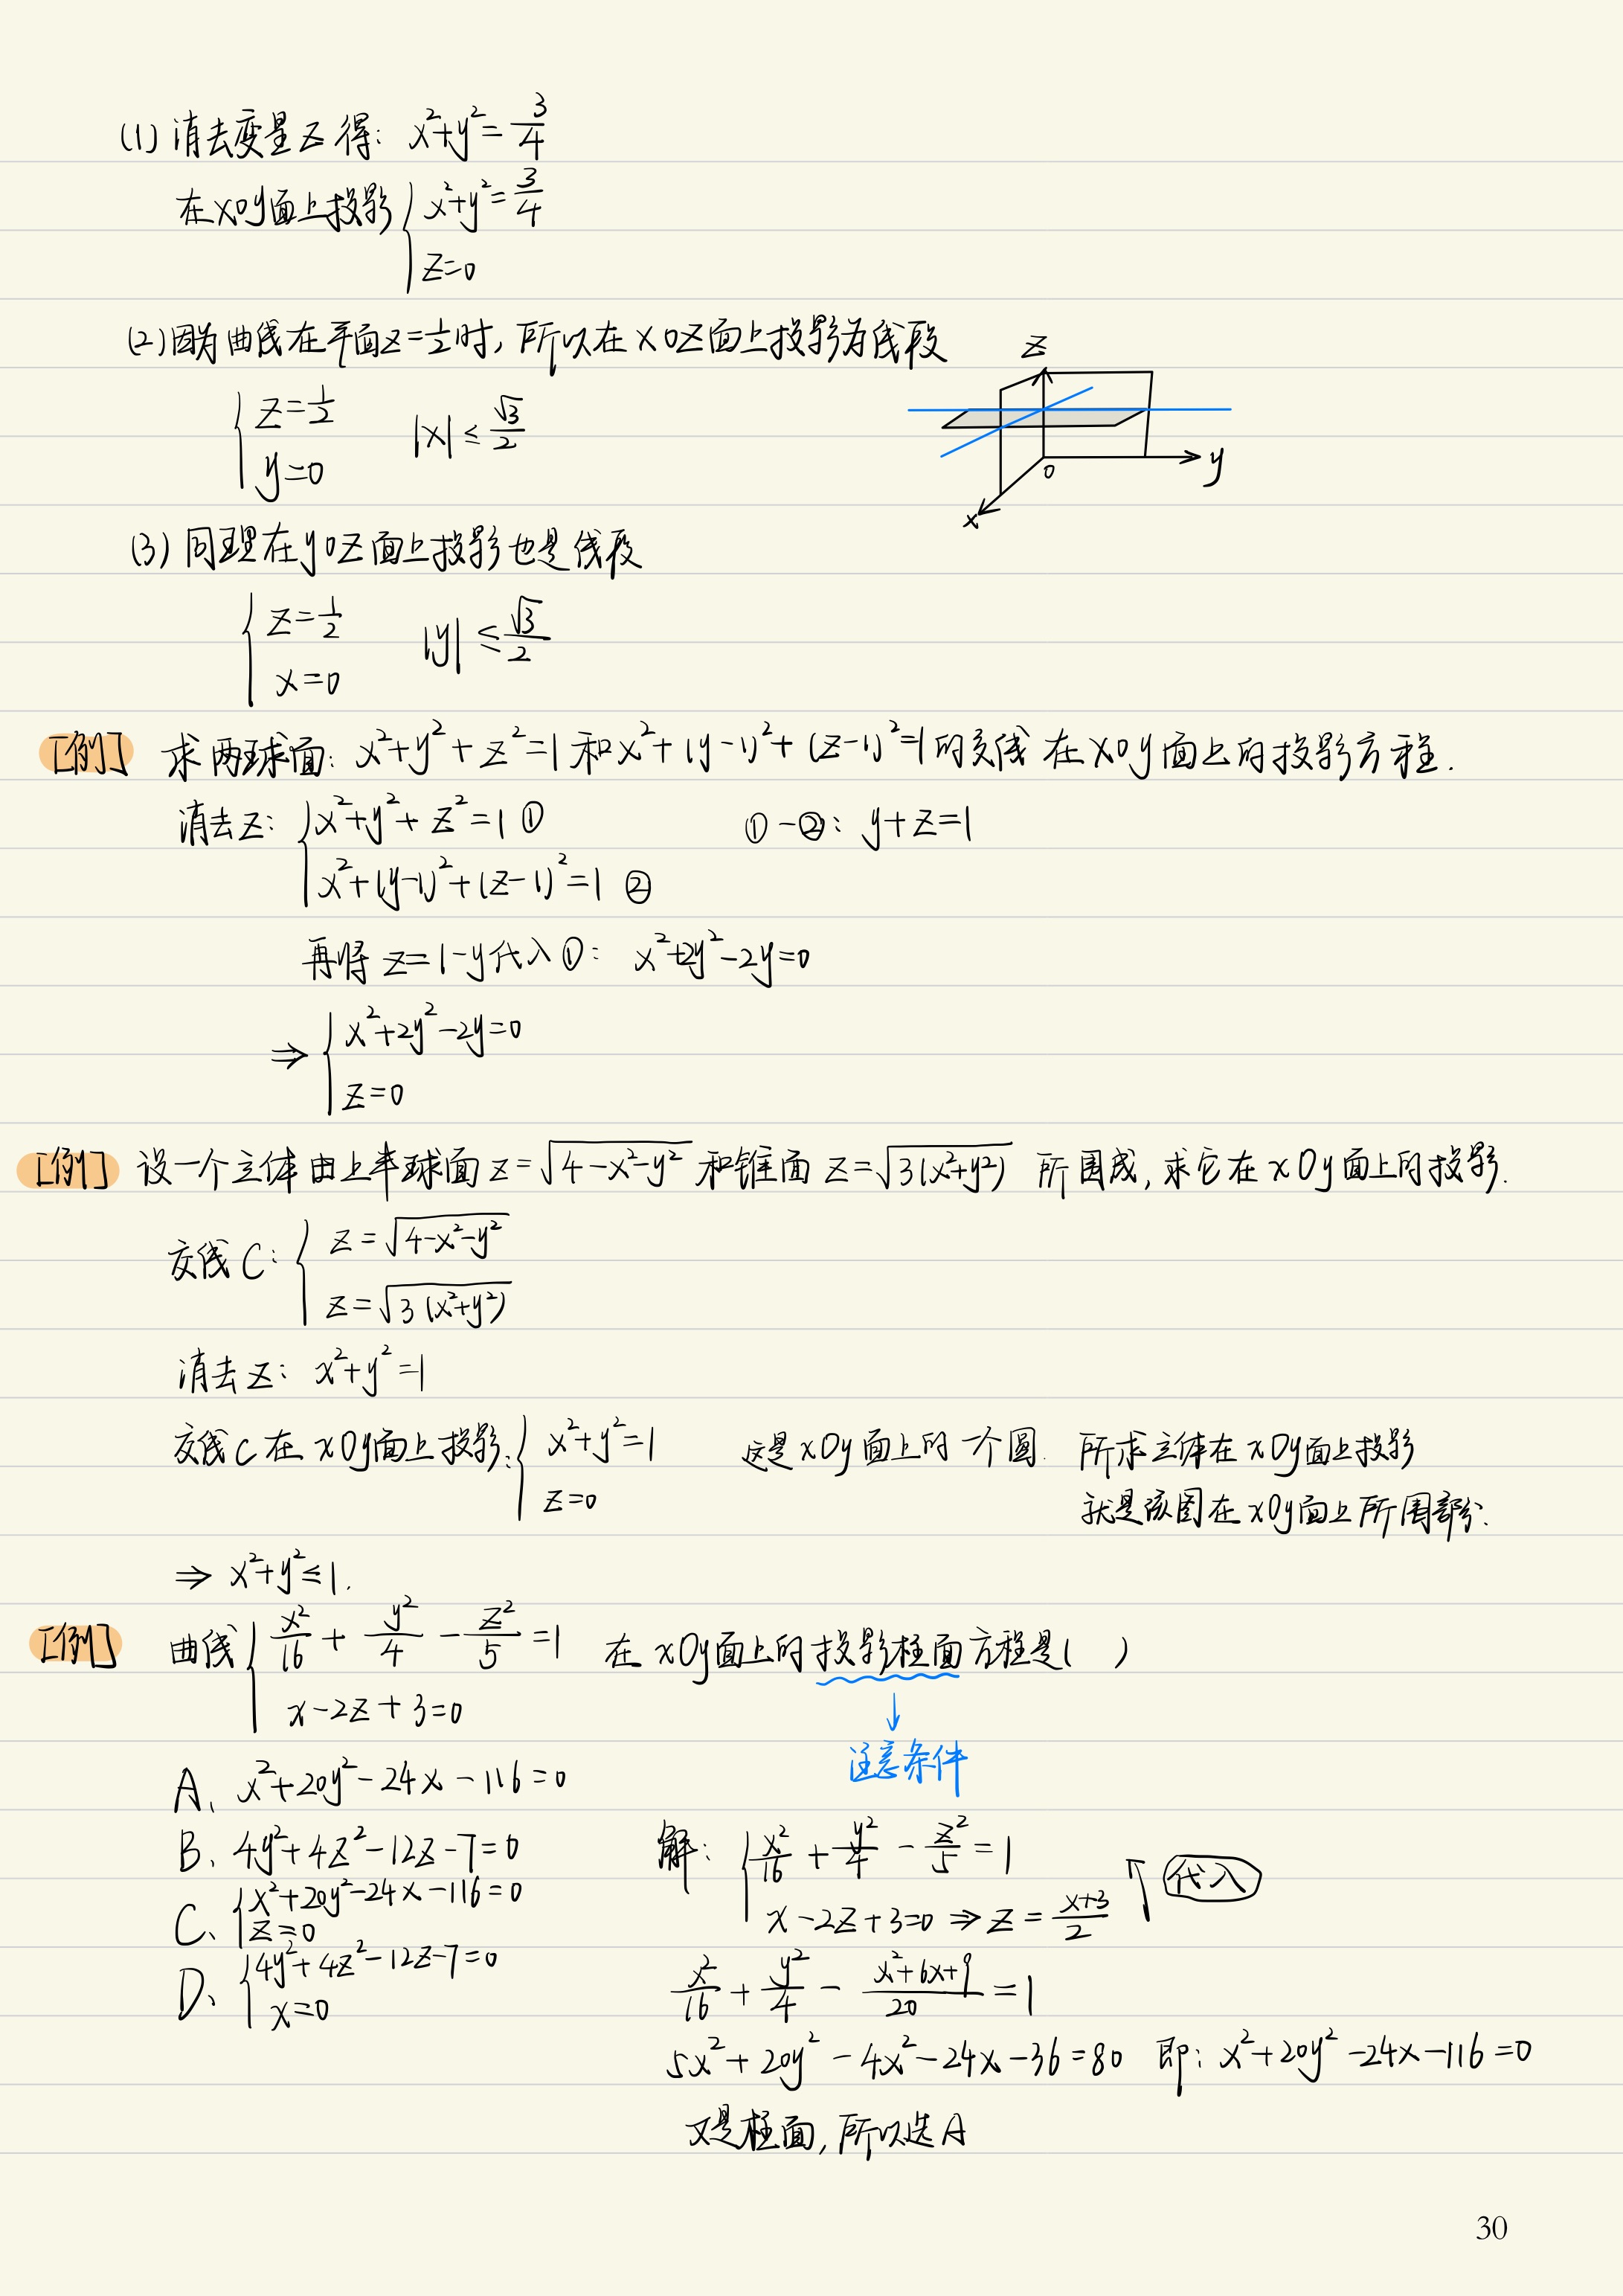 (1) 消去变量z得: x²+y²=3/4
在xoy面上投影 { x²+y²=3/4
z=0
(2) 因为曲线在平面z=1/2时, 所以在xoz面上投影为线段
{ z=1/2
y=0
|x| ≤ √3/2
z
y
o
x
(3) 同理在yoz面上投影也是线段
{ z=1/2
x=0
|y| ≤ √3/2
[例] 求两球面: x²+y²+z²=1和x²+(y-1)²+(z-1)²=1的交线在xoy面上的投影方程.
消去z: { x²+y²+z²=1 ① ①-②: y+z=1
x²+(y-1)²+(z-1)²=1 ②
再将z=1-y代入①: x²+2y²-2y=0
⇒ { x²+2y²-2y=0
z=0
[例] 设一个立体由上半球面z=√(4-x²-y²)和锥面z=√(3(x²+y²))所围成, 求它在xOy面上的投影.
交线C: { z=√(4-x²-y²)
z=√(3(x²+y²))
消去z: x²+y²=1
交线C在xOy面上投影: { x²+y²=1 这是xOy面上的一个圆. 所求立体在xOy面上投影
z=0 就是该图在xOy面上所围部分.
⇒ x²+y²≤1.
[例] 曲线 { x²/16 + y²/4 - z²/5 =1 在xOy面上的投影柱面方程是( )
x-2z+3=0
↓
注意条件
A、x²+20y²-24x-116=0
B、4y²+4z²-12z-7=0
C、{ x²+20y²-24x-116=0
z=0
D、{ 4y²+4z²-12z-7=0
x=0
解: { x²/16 + y²/4 - z²/5 =1
x-2z+3=0 ⇒ z=(x+3)/2 ↑ 代入
x²/16 + y²/4 - (x²+6x+9)/20 =1
5x²+20y²-4x²-24x-36=80 即: x²+20y²-24x-116=0
又是柱面, 所以选A
30